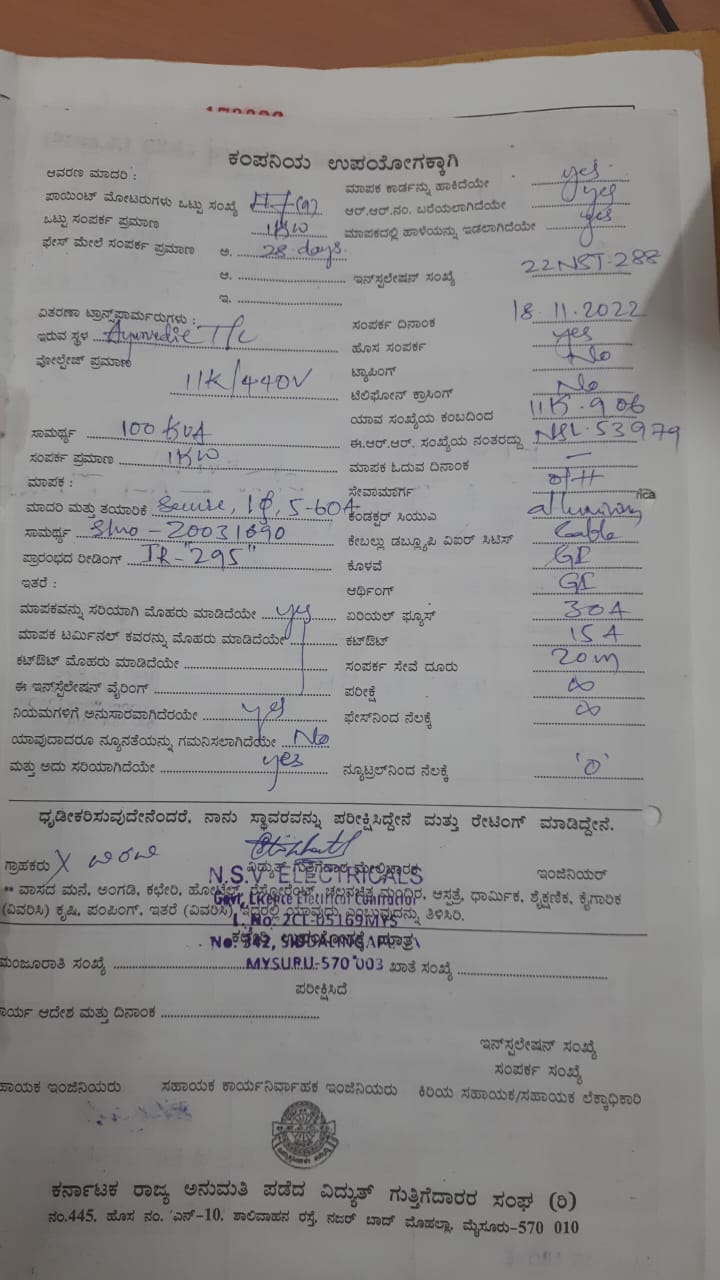 ಕಂಪನಿಯ ಉಪಯೋಗಕ್ಕಾಗಿ
ಆವರಣ ಮಾದರಿ :
ಮಾಪಕ ಕಾರ್ಡನ್ನು ಹಾಕಿದೆಯೇ yes
ಪಾಯಿಂಟ್ ಮೋಟರುಗಳು ಒಟ್ಟು ಸಂಖ್ಯೆ
ಆರ್.ಆರ್.ನಂ. ಬರೆಯಲಾಗಿದೆಯೇ yes
ಒಟ್ಟು ಸಂಪರ್ಕ ಪ್ರಮಾಣ 1KW
ಮಾಪಕದಲ್ಲಿ ಹಾಳೆಯನ್ನು ಇಡಲಾಗಿದೆಯೇ yes
ಫೇಸ್ ಮೇಲೆ ಸಂಪರ್ಕ ಪ್ರಮಾಣ ಅ. 28 days.
ಆ. ಇನ್‌ಸ್ಟಲೇಷನ್ ಸಂಖ್ಯೆ 22NST.288
ಇ.
ವಿತರಣಾ ಟ್ರಾನ್ಸ್‌ಫಾರ್ಮರುಗಳು :
ಸಂಪರ್ಕ ದಿನಾಂಕ 18.11.2022
ಇರುವ ಸ್ಥಳ Ayurvedic T/c
ಹೊಸ ಸಂಪರ್ಕ yes
ವೋಲ್ಟೇಜ್ ಪ್ರಮಾಣ 11K/440V
ಟ್ಯಾಪಿಂಗ್ No
ಟೆಲಿಫೋನ್ ಕ್ರಾಸಿಂಗ್ No
ಯಾವ ಸಂಖ್ಯೆಯ ಕಂಬದಿಂದ 11K.906
ಸಾಮರ್ಥ್ಯ 100 KVA
ಈ.ಆರ್.ಆರ್. ಸಂಖ್ಯೆಯ ನಂತರದ್ದು NSL.53979
ಸಂಪರ್ಕ ಪ್ರಮಾಣ 1KW
ಮಾಪಕ ಓದುವ ದಿನಾಂಕ –
ಮಾಪಕ :
ಸೇವಾಮಾರ್ಗ O/H
rica
ಮಾದರಿ ಮತ್ತು ತಯಾರಿಕೆ Secure, 1φ, 5-60A
ಕಂಡಕ್ಟರ್ ಸಿಯುಎ
ಸಾಮರ್ಥ್ಯ Slno - 20031690
ಕೇಬಲ್ಲು ಡಬ್ಲ್ಯೂಪಿ ವಿಐರ್ ಸಿಟಿಸ್ Cable
ಪ್ರಾರಂಭದ ರೀಡಿಂಗ್ IR-"295"
ಕೊಳವೆ GI
ಇತರೆ :
ಆರ್ಥಿಂಗ್ GI
ಮಾಪಕವನ್ನು ಸರಿಯಾಗಿ ಮೊಹರು ಮಾಡಿದೆಯೇ yes
ಏರಿಯಲ್ ಫ್ಯೂಸ್ 30A
ಮಾಪಕ ಟರ್ಮಿನಲ್ ಕವರನ್ನು ಮೊಹರು ಮಾಡಿದೆಯೇ
ಕಟ್‌ಔಟ್ 15A
ಕಟ್‌ಔಟ್ ಮೊಹರು ಮಾಡಿದೆಯೇ
ಸಂಪರ್ಕ ಸೇವೆ ದೂರು 20m
ಈ ಇನ್‌ಸ್ಟಲೇಷನ್ ವೈರಿಂಗ್
ಪರೀಕ್ಷೆ ∞
ನಿಯಮಗಳಿಗೆ ಅನುಸಾರವಾಗಿದೆರಯೇ yes
ಫೇಸ್‌ನಿಂದ ನೆಲಕ್ಕೆ ∞
ಯಾವುದಾದರೂ ನ್ಯೂನತೆಯನ್ನು ಗಮನಿಸಲಾಗಿದೆಯೇ No
ಮತ್ತು ಅದು ಸರಿಯಾಗಿದೆಯೇ yes
ನ್ಯೂಟ್ರಲ್‌ನಿಂದ ನೆಲಕ್ಕೆ '0'
ಧೃಡೀಕರಿಸುವುದೇನೆಂದರೆ, ನಾನು ಸ್ಥಾವರವನ್ನು ಪರೀಕ್ಷಿಸಿದ್ದೇನೆ ಮತ್ತು ರೇಟಿಂಗ್ ಮಾಡಿದ್ದೇನೆ.
ಗ್ರಾಹಕರು X
ವಿದ್ಯುತ್ ಗುತ್ತಿಗೆದಾರ ಮೇಲ್ವಿಚಾರಕ
ಇಂಜಿನಿಯರ್
N.S.V ELECTRICALS
** ವಾಸದ ಮನೆ, ಅಂಗಡಿ, ಕಛೇರಿ, ಹೋಟೆಲ್, ರೆಸ್ಟೋರೆಂಟ್, ಚಲನಚಿತ್ರ ಮಂದಿರ, ಆಸ್ಪತ್ರೆ, ಧಾರ್ಮಿಕ, ಶೈಕ್ಷಣಿಕ, ಕೈಗಾರಿಕ
Govt. Licence Electrical Contractor
(ವಿವರಿಸಿ) ಕೃಷಿ, ಪಂಪಿಂಗ್, ಇತರೆ (ವಿವರಿಸಿ) ಇದರಲ್ಲಿ ಯಾವುದು ಎಂಬುದನ್ನು ತಿಳಿಸಿರಿ.
L. No. 2CL-05169MYS
ಕಛೇರಿ ಉಪಯೋಗಕ್ಕೆ ಮಾತ್ರ
No. 342,
MYSURU-570 003
ಮಂಜೂರಾತಿ ಸಂಖ್ಯೆ
ಖಾತೆ ಸಂಖ್ಯೆ
ಪರೀಕ್ಷಿಸಿದೆ
ಕಾರ್ಯ ಆದೇಶ ಮತ್ತು ದಿನಾಂಕ
ಇನ್‌ಸ್ಟಲೇಷನ್ ಸಂಖ್ಯೆ
ಸಂಪರ್ಕ ಸಂಖ್ಯೆ
ಹಾಯಕ ಇಂಜಿನಿಯರು ಸಹಾಯಕ ಕಾರ್ಯನಿರ್ವಾಹಕ ಇಂಜಿನಿಯರು ಕಿರಿಯ ಸಹಾಯಕ/ಸಹಾಯಕ ಲೆಕ್ಕಾಧಿಕಾರಿ
ಕರ್ನಾಟಕ ರಾಜ್ಯ ಅನುಮತಿ ಪಡೆದ ವಿದ್ಯುತ್ ಗುತ್ತಿಗೆದಾರರ ಸಂಘ (ರಿ)
ನಂ.445, ಹೊಸ ನಂ. ಎನ್-10, ಶಾಲಿವಾಹನ ರಸ್ತೆ, ನಜರ್ ಬಾದ್ ಮೊಹಲ್ಲಾ, ಮೈಸೂರು-570 010